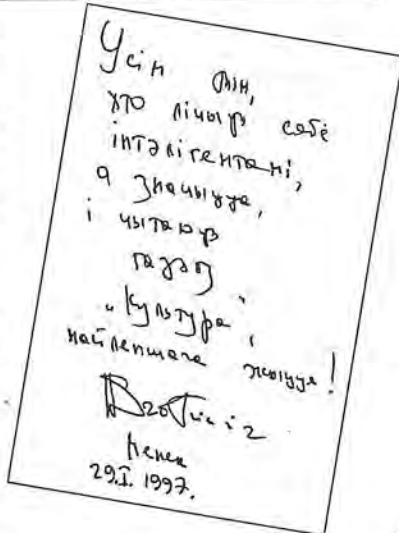 Усім тым,
хто лічыць сябе
інтэлігентамі,
а значыцца,
і чытаюць
газэту
„Культура“,
найлепшага жыцця!
Менск
29.I.1997.